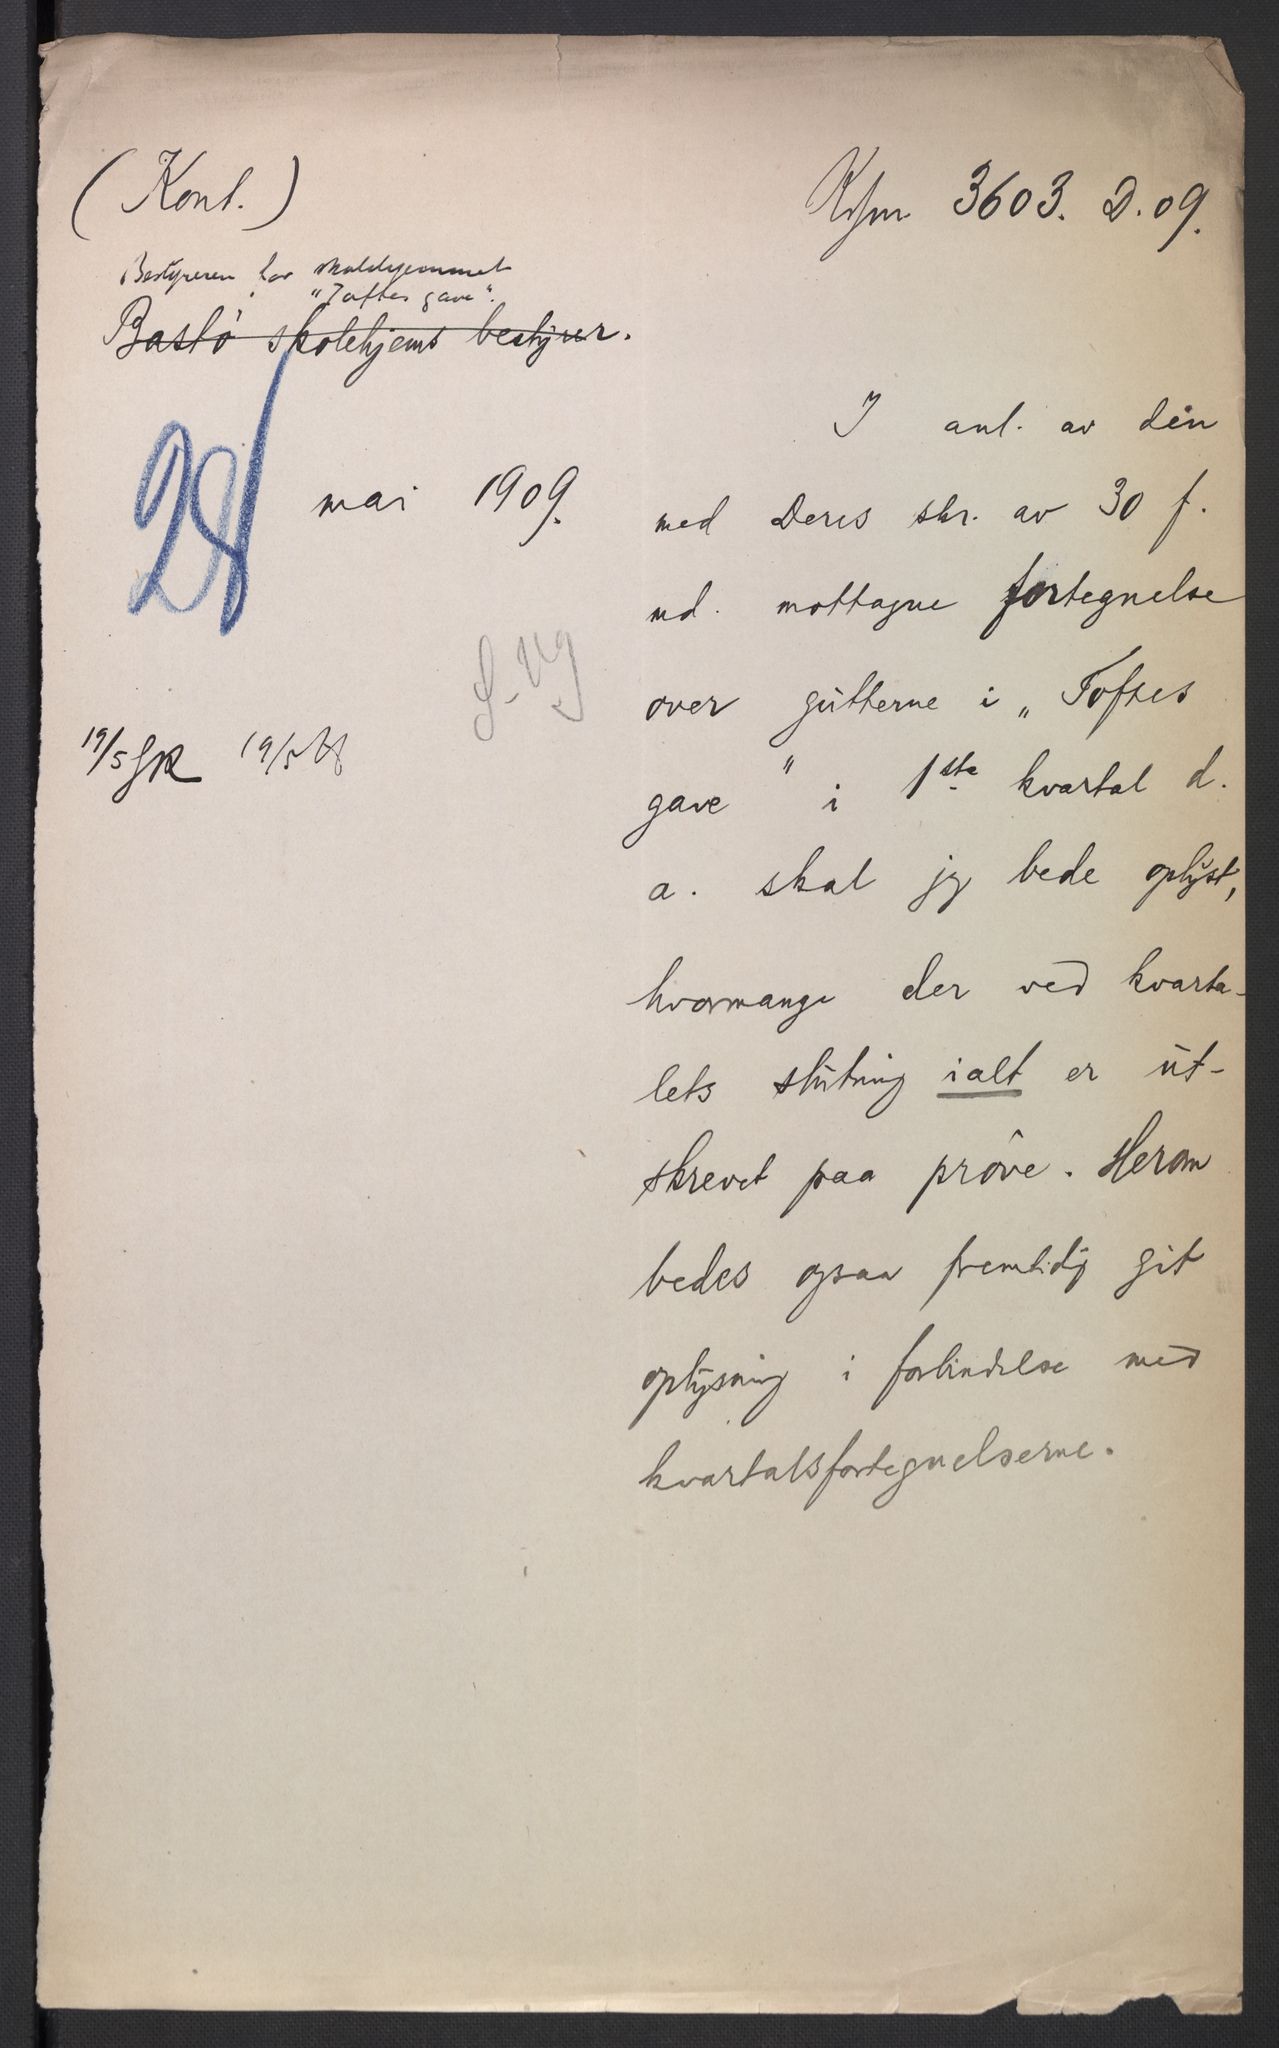 (Kont.)
3603. D. 09.
Bestyreren for skolehjemmet
"Toftes gave".
Bastö skolehjems bestyrer.
28 mai 1909.
19/5 19/5
I anl. av den
med Deres skr. av 30 f.
md. mottagne fortegnelse
over gutterne i „Toftes
gave" i 1ste kvartal d.
a. skal jeg bede oplyst,
hvormange der ved kvarta-
lets slutning ialt er ut-
skrevet paa pröve. Herom
bedes ogsaa fremtidig git
oplysning i forbindelse med
kvartalsfortegnelserne.